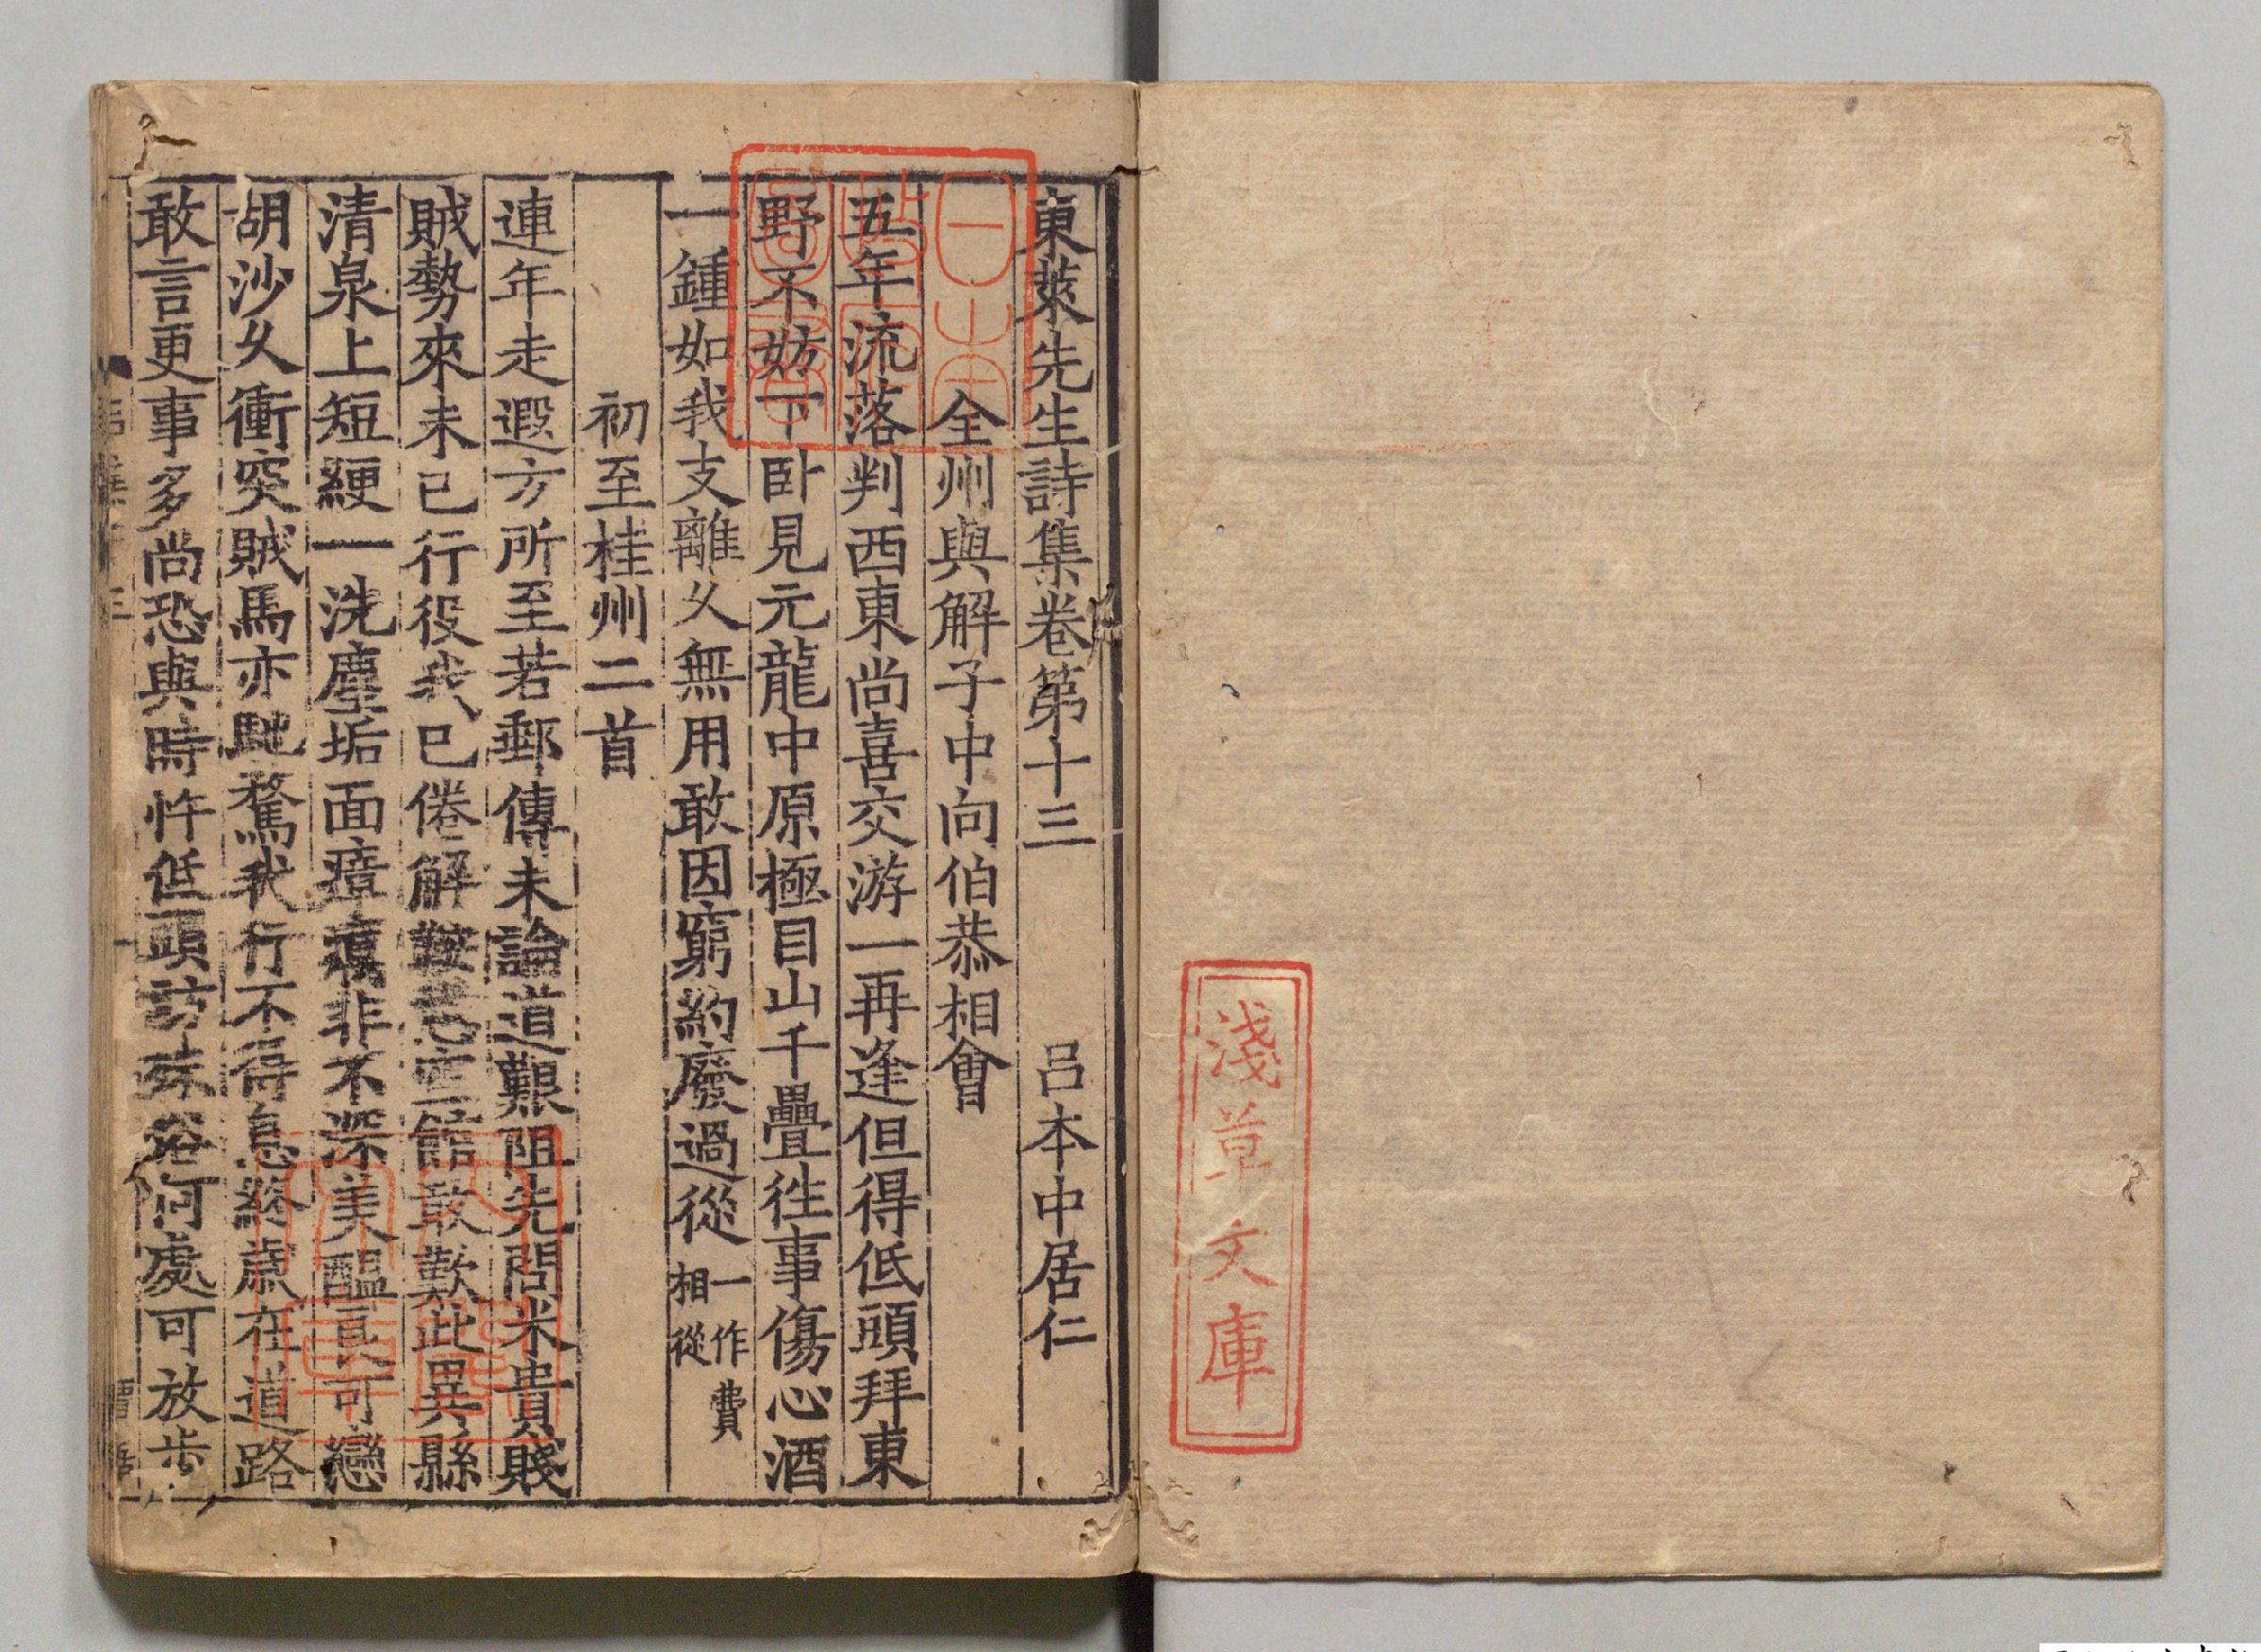 淺草文庫
東萊先生詩集卷第十三 吕本中居仁
全州與解子中向伯恭相會
五年流落判西東尚喜交游一再逢但得低頭拜東
野不妨下卧見元龍中原極目山千疊徃事傷心酒
一鍾如我支離乆無用敢因窮約廢過從一作費相從
初至桂州二首
連年走遐方所至若郵傳未論道艱阻先問米貴賤
賊勢來未已行役我已倦解鞍空館敢歎此異縣
清泉上短綆一洗塵垢面瘴癘非不深美醞良可戀
胡沙乆衝突賊馬亦馳騖我行不得息終歲在道路
敢言更事多尚恐與時忤低頭訪殊俗何處可放步